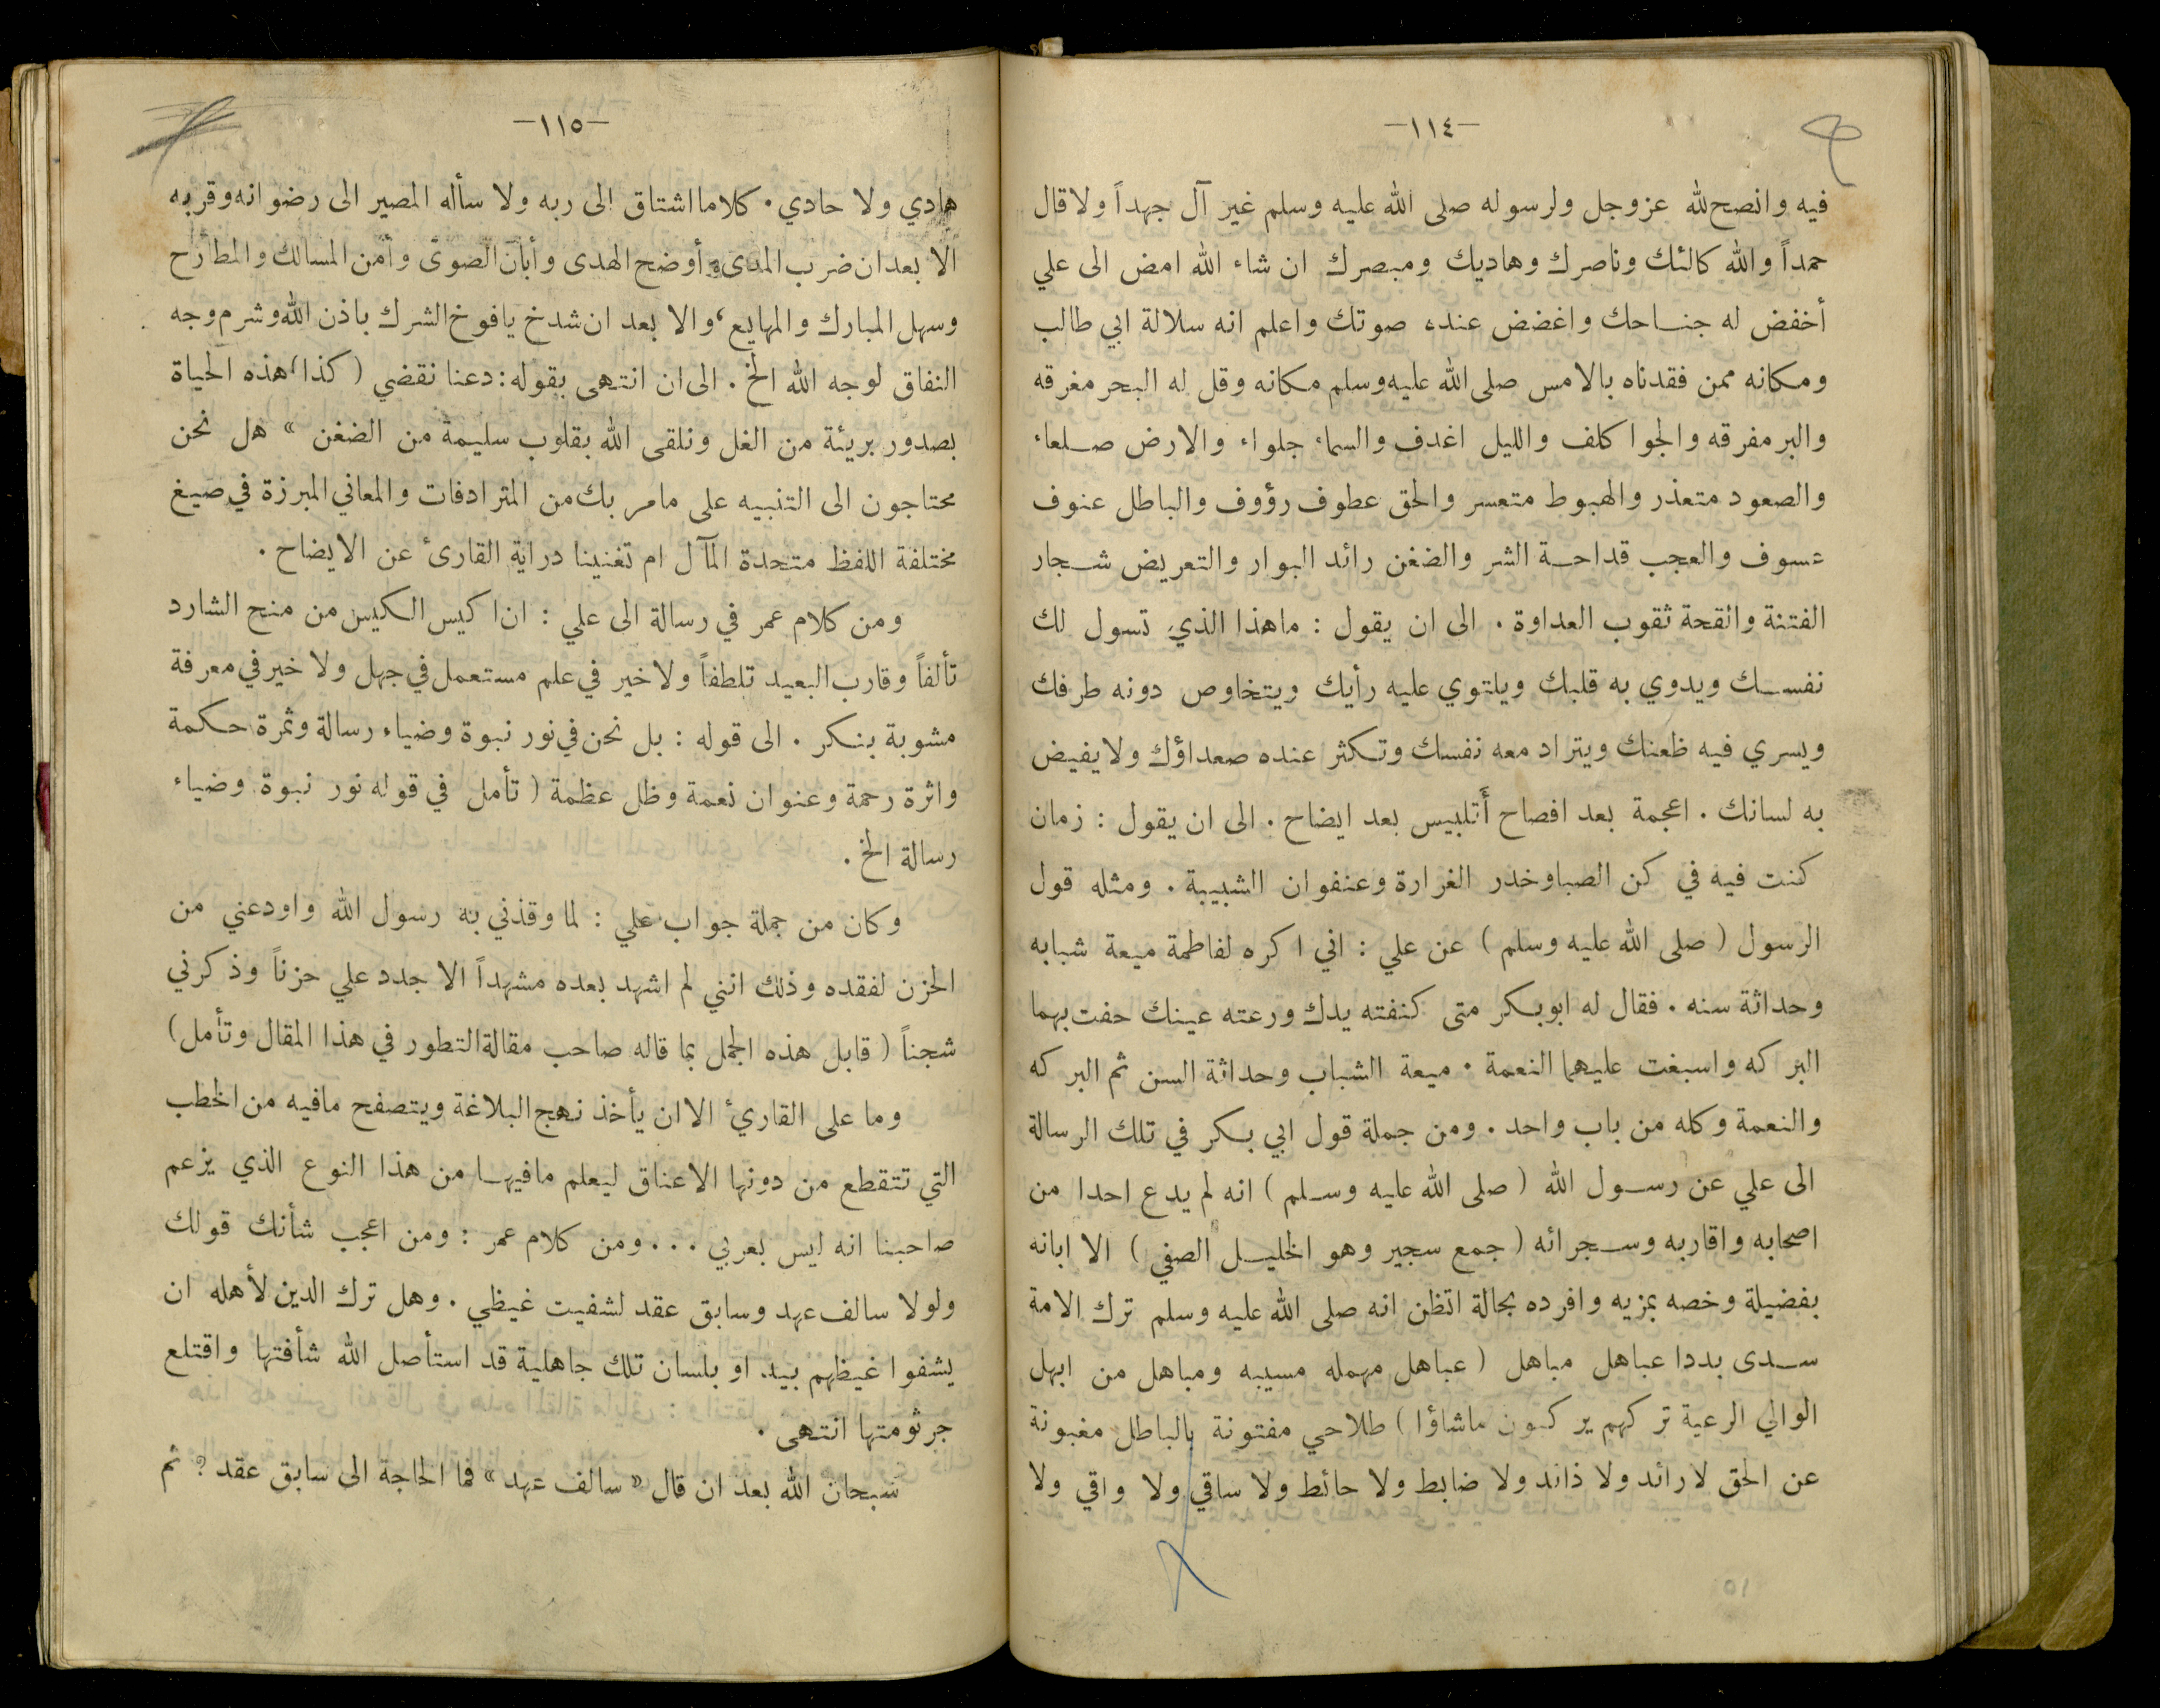 -١١٤-
فيه وانصح لله عزوجل ولرسوله صلى الله عليه وسلم غير آل جهداً ولا قال
حمداً والله كالئك وناصرك وهاديك ومبصرك ان شاء الله امض الى علي
أخفض له جناحك واغضض عنده صوتك واعلم انه سلالة ابي طالب
ومكانه ممن فقدناه بالامس صلى الله عليه وسلم مكانه وقل له البحر مغرقه
والبر مفرقه والجو اكلف والليل اغدف والسماء جلواء والارض صلعاء
والصعود متعذر والهبوط متعسر والحق عطوف رؤوف والباطل عنوف
عسوف والعجب قداحة الشر والضغن رائد البوار والتعريض شجار
الفتنة والقحة ثقوب العداوة . الى ان يقول : ماهذا الذي تسول لك
نفسك ويدوي به قلبك ويلتوي عليه رأيك ويتخاوص دونه طرفك
ويسري فيه ظعنك ويتراد معه نفسك وتكثر عنده صعداؤك ولا يفيض
به لسانك . اعجمة بعد افصاح أتلبيس بعد ايضاح . الى ان يقول : زمان
كنت فيه في كن الصبا وخدر الغرارة وعنفوان الشبيبة . ومثله قول
الرسول ( صلى الله عليه وسلم ) عن علي : اني اكره لفاطمة ميعة شبابه
وحداثة سنه . فقال له ابو بكر متى كنفته يدك ورعته عينك حفت بهما
البركه واسبغت عليهما النعمة . ميعة الشباب وحداثة السن ثم البركه
والنعمة وكله من باب واحد . ومن جملة قول ابي بكر في تلك الرسالة
الى علي عن رسول الله ( صلى الله عليه وسلم ) انه لم يدع احدا من
اصحابه واقاربه وسجرائه ( جمع سجير وهو الخليل الصفي ) الا ابانه
بفضيلة وخصه بمزيه وافرده بحالة اتظن انه صلى الله عليه وسلم ترك الامة
سدى بددا عباهل مباهل ( عباهل مهمله مسيبه ومباهل من ابهل
الوالي الرعية تركهم يركبون ماشاؤا ) طلاحي مفتونة بالباطل مغبونة
عن الحق لا رائد ولا ذائد ولا ضابط ولا حائط ولا ساقي ولا واقي ولا
-١١٥-
هادي ولا حادي . كلا ما اشتاق الى ربه ولا سأله المصير الى رضوانه وقربه
الا بعد ان ضرب المدى وأوضح الهدى وأبان الصوى وأمن المسالك والمطارح
وسهل المبارك والمهايع ، والا بعد ان شدخ يافوخ الشرك باذن الله وشرم وجه
النفاق لوجه الله الخ . الى ان انتهى بقوله : دعنا نقضي ( كذا ) هذه الحياة
بصدور بريئة من الغل ونلقى الله بقلوب سليمة من الضغن » هل نحن
محتاجون الى التنبيه على مامر بك من المترادفات والمعاني المبرزة في صيغ
مختلفة اللفظ متحدة المآل ام تغنينا دراية القارئ عن الايضاح .
ومن كلام عمر في رسالة الى علي : ان اكيس الكيس من منح الشارد
تألفاً وقارب البعيد تلطفاً ولا خير في علم مستعمل في جهل ولا خير في معرفة
مشوبة بنكر . الى قوله : بل نحن في نور نبوة وضياء رسالة وثمرة حكمة
واثرة رحمة وعنوان نعمة وظل عظمة ( تأمل في قوله نور نبوة وضياء
رسالة الخ .
وكان من جملة جواب علي : لما وقذني به رسول الله واودعني من
الحزن لفقده وذلك انني لم اشهد بعده مشهداً الا جدد علي حزناً وذكرني
شجناً ( قابل هذه الجمل بما قاله صاحب مقالة التطور في هذا المقال وتأمل )
وما على القاريء الا ان يأخذ نهج البلاغة ويتصفح مافيه من الخطب
التي تتقطع من دونها الاعناق ليعلم مافيها من هذا النوع الذي يزعم
صاحبنا انه ليس بعربي ... ومن كلام عمر : ومن اعجب شأنك قولك
ولولا سالف عهد وسابق عقد لشفيت غيظي . وهل ترك الدين لأهله ان
يشفوا غيظهم بيد او بلسان تلك جاهلية قد استأصل الله شأفتها واقتلع
جرثومتها انتهى .
سبحان الله بعد ان قال « سالف عهد » فما الحاجة الى سابق عقد ? ثم